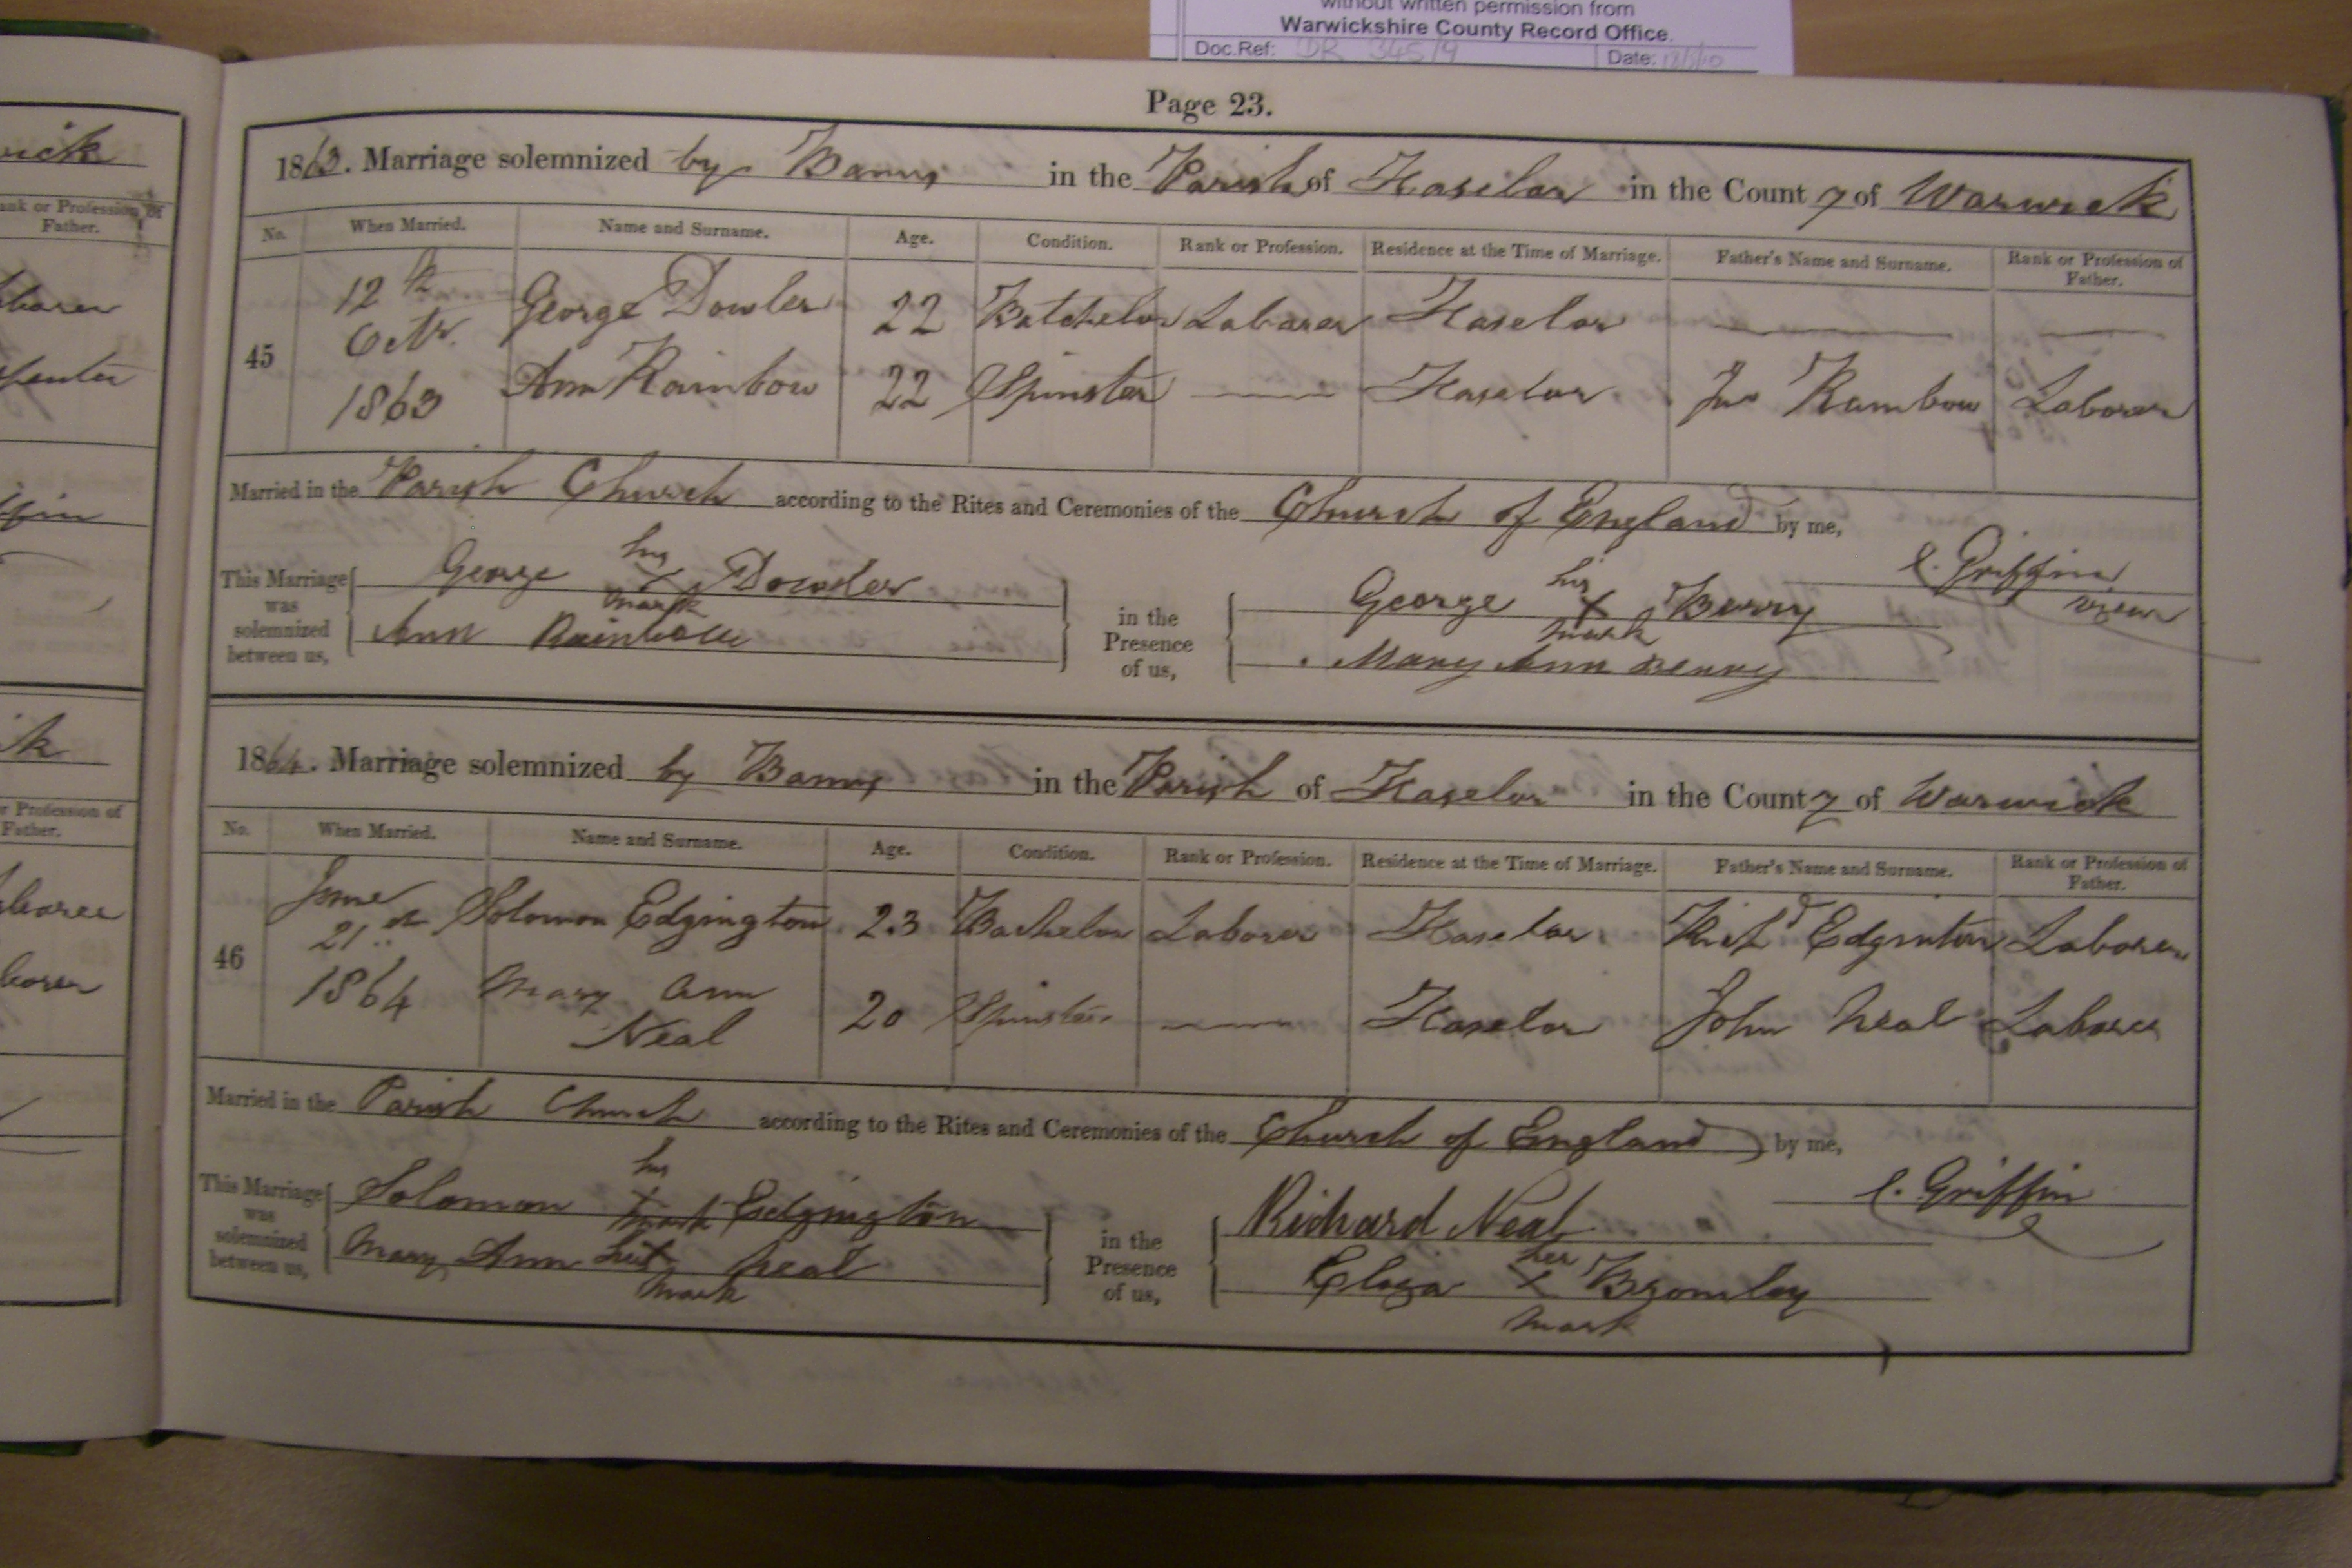 without written permission from
Warwickshire County Record Office.
Doc.Ref: DR 345/9 Date: 18/3/10
Page 23.
1863. Marriage solemnized by Banns in the Parish of Haselor in the County of Warwick
No. When Married. Name and Surname. Age. Condition. Rank or Profession. Residence at the Time of Marriage. Father's Name and Surname. Rank or Profession of Father.
45 12th Octr. 1863 George Dowler 22 Batchelor Laborer Haselor
Ann Rainbow 22 Spinster Haselor Jno Rainbow Laborer
Married in the Parish Church according to the Rites and Ceremonies of the Church of England by me,
C. Griffin
This Marriage was solemnized between us, George his X mark Dowler
Ann Rainbow
in the Presence of us, George his X mark Berry
Mary Ann Berry
1864. Marriage solemnized by Banns in the Parish of Haselor in the County of Warwick
No. When Married. Name and Surname. Age. Condition. Rank or Profession. Residence at the Time of Marriage. Father's Name and Surname. Rank or Profession of Father.
46 June 21st 1864 Solomon Edgington 23 Bachelor Laborer Haselor Richd Edginton Laborer
Mary Ann Neal 20 Spinster Haselor John Neal Laborer
Married in the Parish Church according to the Rites and Ceremonies of the Church of England by me,
C. Griffin
This Marriage was solemnized between us, Solomon his X mark Edgington
Mary Ann her X mark Neal
in the Presence of us, Richard Neal
Eliza her X mark Bromley
wick
Rank or Profession of Father.
laborer
ffin
k
or Profession of Father.
laborer
laborer